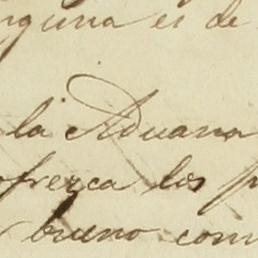 nguna es de
la Aduana
ofrezca los p
bueno com